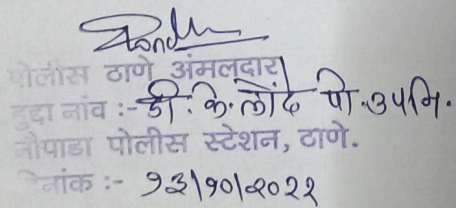 पोलीस ठाणे अंमलदार
हुद्दा नांव :- डी. के. लोंढे पो. उपनि.
नौपाडा पोलीस स्टेशन, ठाणे.
दिनांक :- १३/१०/२०२२